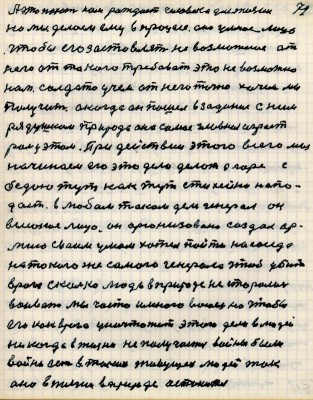 71
А это такой нам рождает человека для жизни
но мы делаем ему в процес. оно умное лицо
чтобы его заставлять не возможное от
него от такого требовать это не возможно
нам. солдата учат от него тоже хочем мы
получить. а когда он пошел в задний с ним
рядушком природа она самое главная играет
роль этом. При действии этого всего мы
начинаем его это дело делать о горе с
бедою тут как тут стихийно напо-
дает. в любом таком деле генерал он
военное лицо. он организовано создал ар-
мию своим умом хотел пойти на соседа
на такого же самого генерала чтоб убить
врага сколько людей в природе не старались
воевать мы часто и много воевали чтобы
его как врага уничтожить этого дела в людей
никогда в жизни не получится войны были
война есть в таких живущих людей так
она в жизни в природе останется